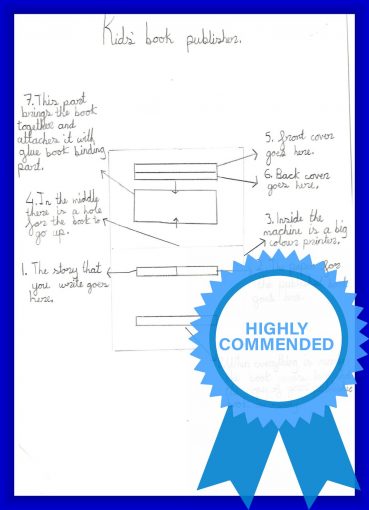 Kids' book publisher.
7. This part
brings the book
together and
attaches it with
glue book binding
part.
5. Front cover
goes here.
6. Back cover
goes here.
4. In the middle
there is a hole
for the book to
go up.
3. Inside the
machine is a big
colour printer.
1. The story that
you write goes
here.
for
goes here.
When everything is
book
HIGHLY
COMMENDED